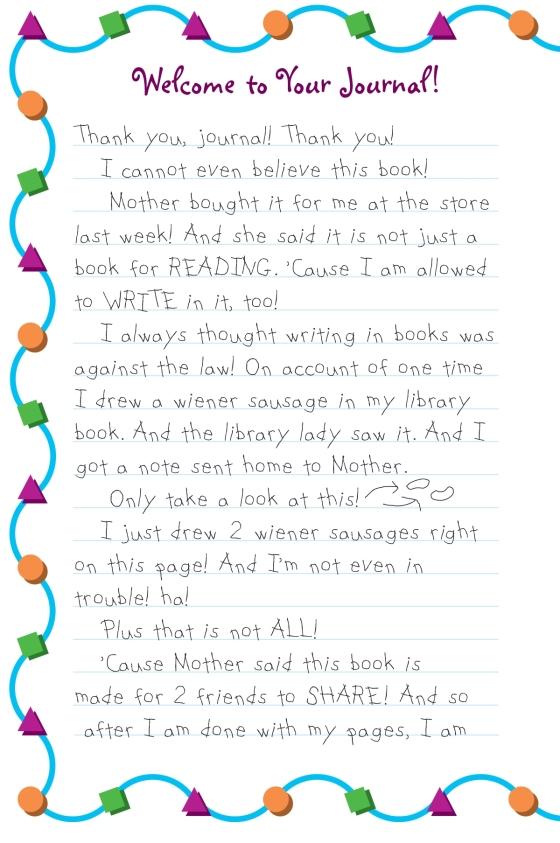 Welcome to Your Journal!
Thank you, journal! Thank you!
I cannot even believe this book!
Mother bought it for me at the store
last week! And she said it is not just a
book for READING. 'Cause I am allowed
to WRITE in it, too!
I always thought writing in books was
against the law! On account of one time
I drew a wiener sausage in my library
book. And the library lady saw it. And I
got a note sent home to Mother.
Only take a look at this!
I just drew 2 wiener sausages right
on this page! And I'm not even in
trouble! ha!
Plus that is not ALL!
'Cause Mother said this book is
made for 2 friends to SHARE! And so
after I am done with my pages, I am